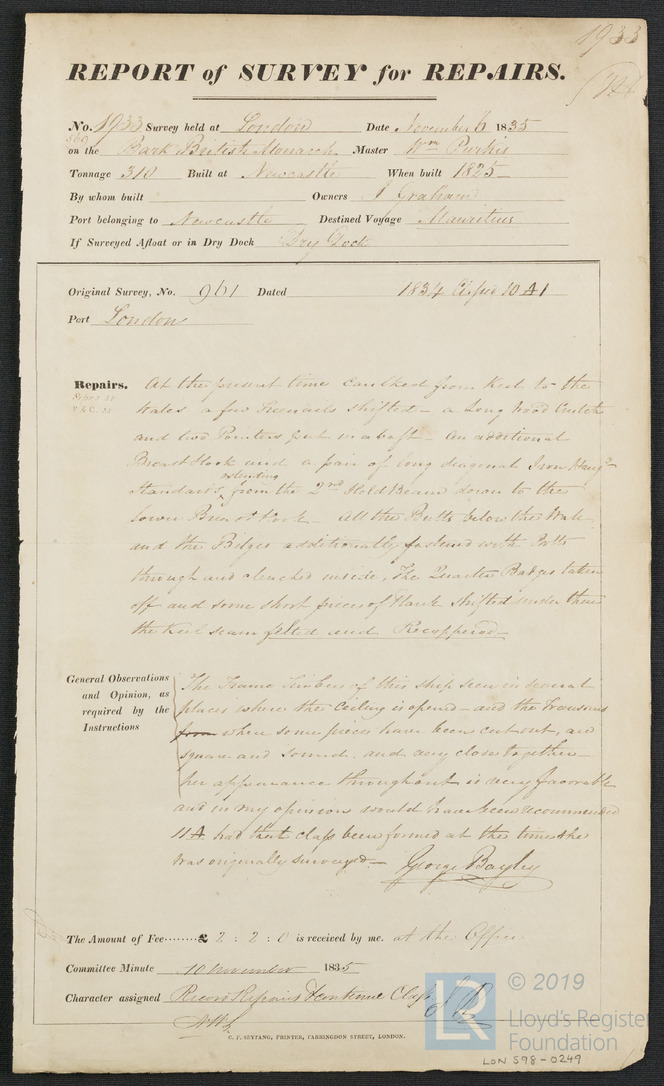 1933
REPORT of SURVEY for REPAIRS.
No. 1933 Survey held at London Date November 6 1835
on the Bark British Monarch Master Wm Purkis
Tonnage 310 Built at Newcastle When built 1825
By whom built Owners J Graham
Port belonging to Newcastle Destined Voyage Mauritius
If Surveyed Afloat or in Dry Dock Dry Dock
Original Survey, No. 961 Dated 1834 Classed 10 A1
Port London
Repairs. At the present time caulked from Keel to the
Wales a few Treenails shifted – a long wood Crutch
and two Pointers put in abaft – An additional
Breast Hook and a pair of long diagonal Iron Hangg
Standards extending from the 2nd Hold Beam down to the
lower Breast Hook – All the Butts below the Wale
and the Bilges additionally fastened with bolts
through and clenched inside, The Quarter Badges taken
off and some short pieces of Plank shifted under them
the Keel seam felted and Recoppered –
General Observations and Opinion, as required by the Instructions
The Frame Timbers of this ship seen in several
places where the Ceiling is opened – and the Transoms
from where some pieces have been cut out, are
square and sound, and very close together –
her appearance throughout is very favorable
and in my opinion would have been recommended
11 A had that class been formed at the time she
was originally surveyed – George Bayley
The Amount of Fee ........ £ 2 : 2 : 0 is received by me. at the Office
Committee Minute 10 November 1835
Character assigned Record Repairs & continue Class
C. F. SEYFANG, PRINTER, FARRINGDON STREET, LONDON.
LR
© 2019
Lloyd's Register
Foundation
LON 598-0249